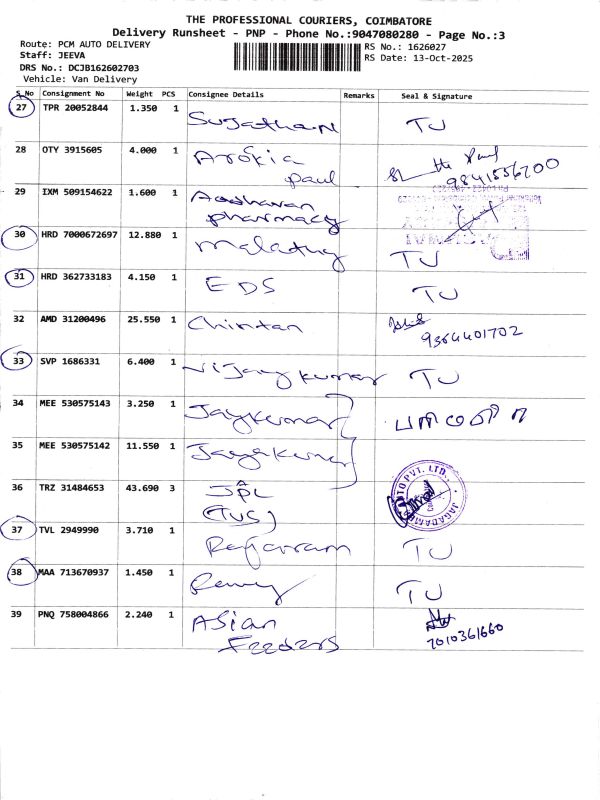 THE PROFESSIONAL COURIERS, COIMBATORE
Delivery Runsheet - PNP - Phone No.:9047080280 - Page No.:3
Route: PCM AUTO DELIVERY
RS No.: 1626027
Staff: JEEVA
RS Date: 13-Oct-2025
DRS No.: DCJB162602703
Vehicle: Van Delivery
S No Consignment No Weight PCS Consignee Details Remarks Seal & Signature
27 TPR 20052844 1.350 1 Sujatha N TU
28 OTY 3915605 4.000 1 Arokia
paul
29 IXM 509154622 1.600 1 Aadhavan
pharmacy
30 HRD 7000672697 12.880 1 Malathy TU
31 HRD 362733183 4.150 1 EDS TU
32 AMD 31200496 25.550 1 Chintan
9364401702
33 SVP 1686331 6.400 1 Vijaykumar TU
34 MEE 530575143 3.250 1 Jaykumar
35 MEE 530575142 11.550 1 Jayakumar
36 TRZ 31484653 43.690 3 JPL
(TVS)
37 TVL 2949990 3.710 1 Rajaram TU
38 MAA 713670937 1.450 1 TU
39 PNQ 758004866 2.240 1 Asian
Feeders 7010361660